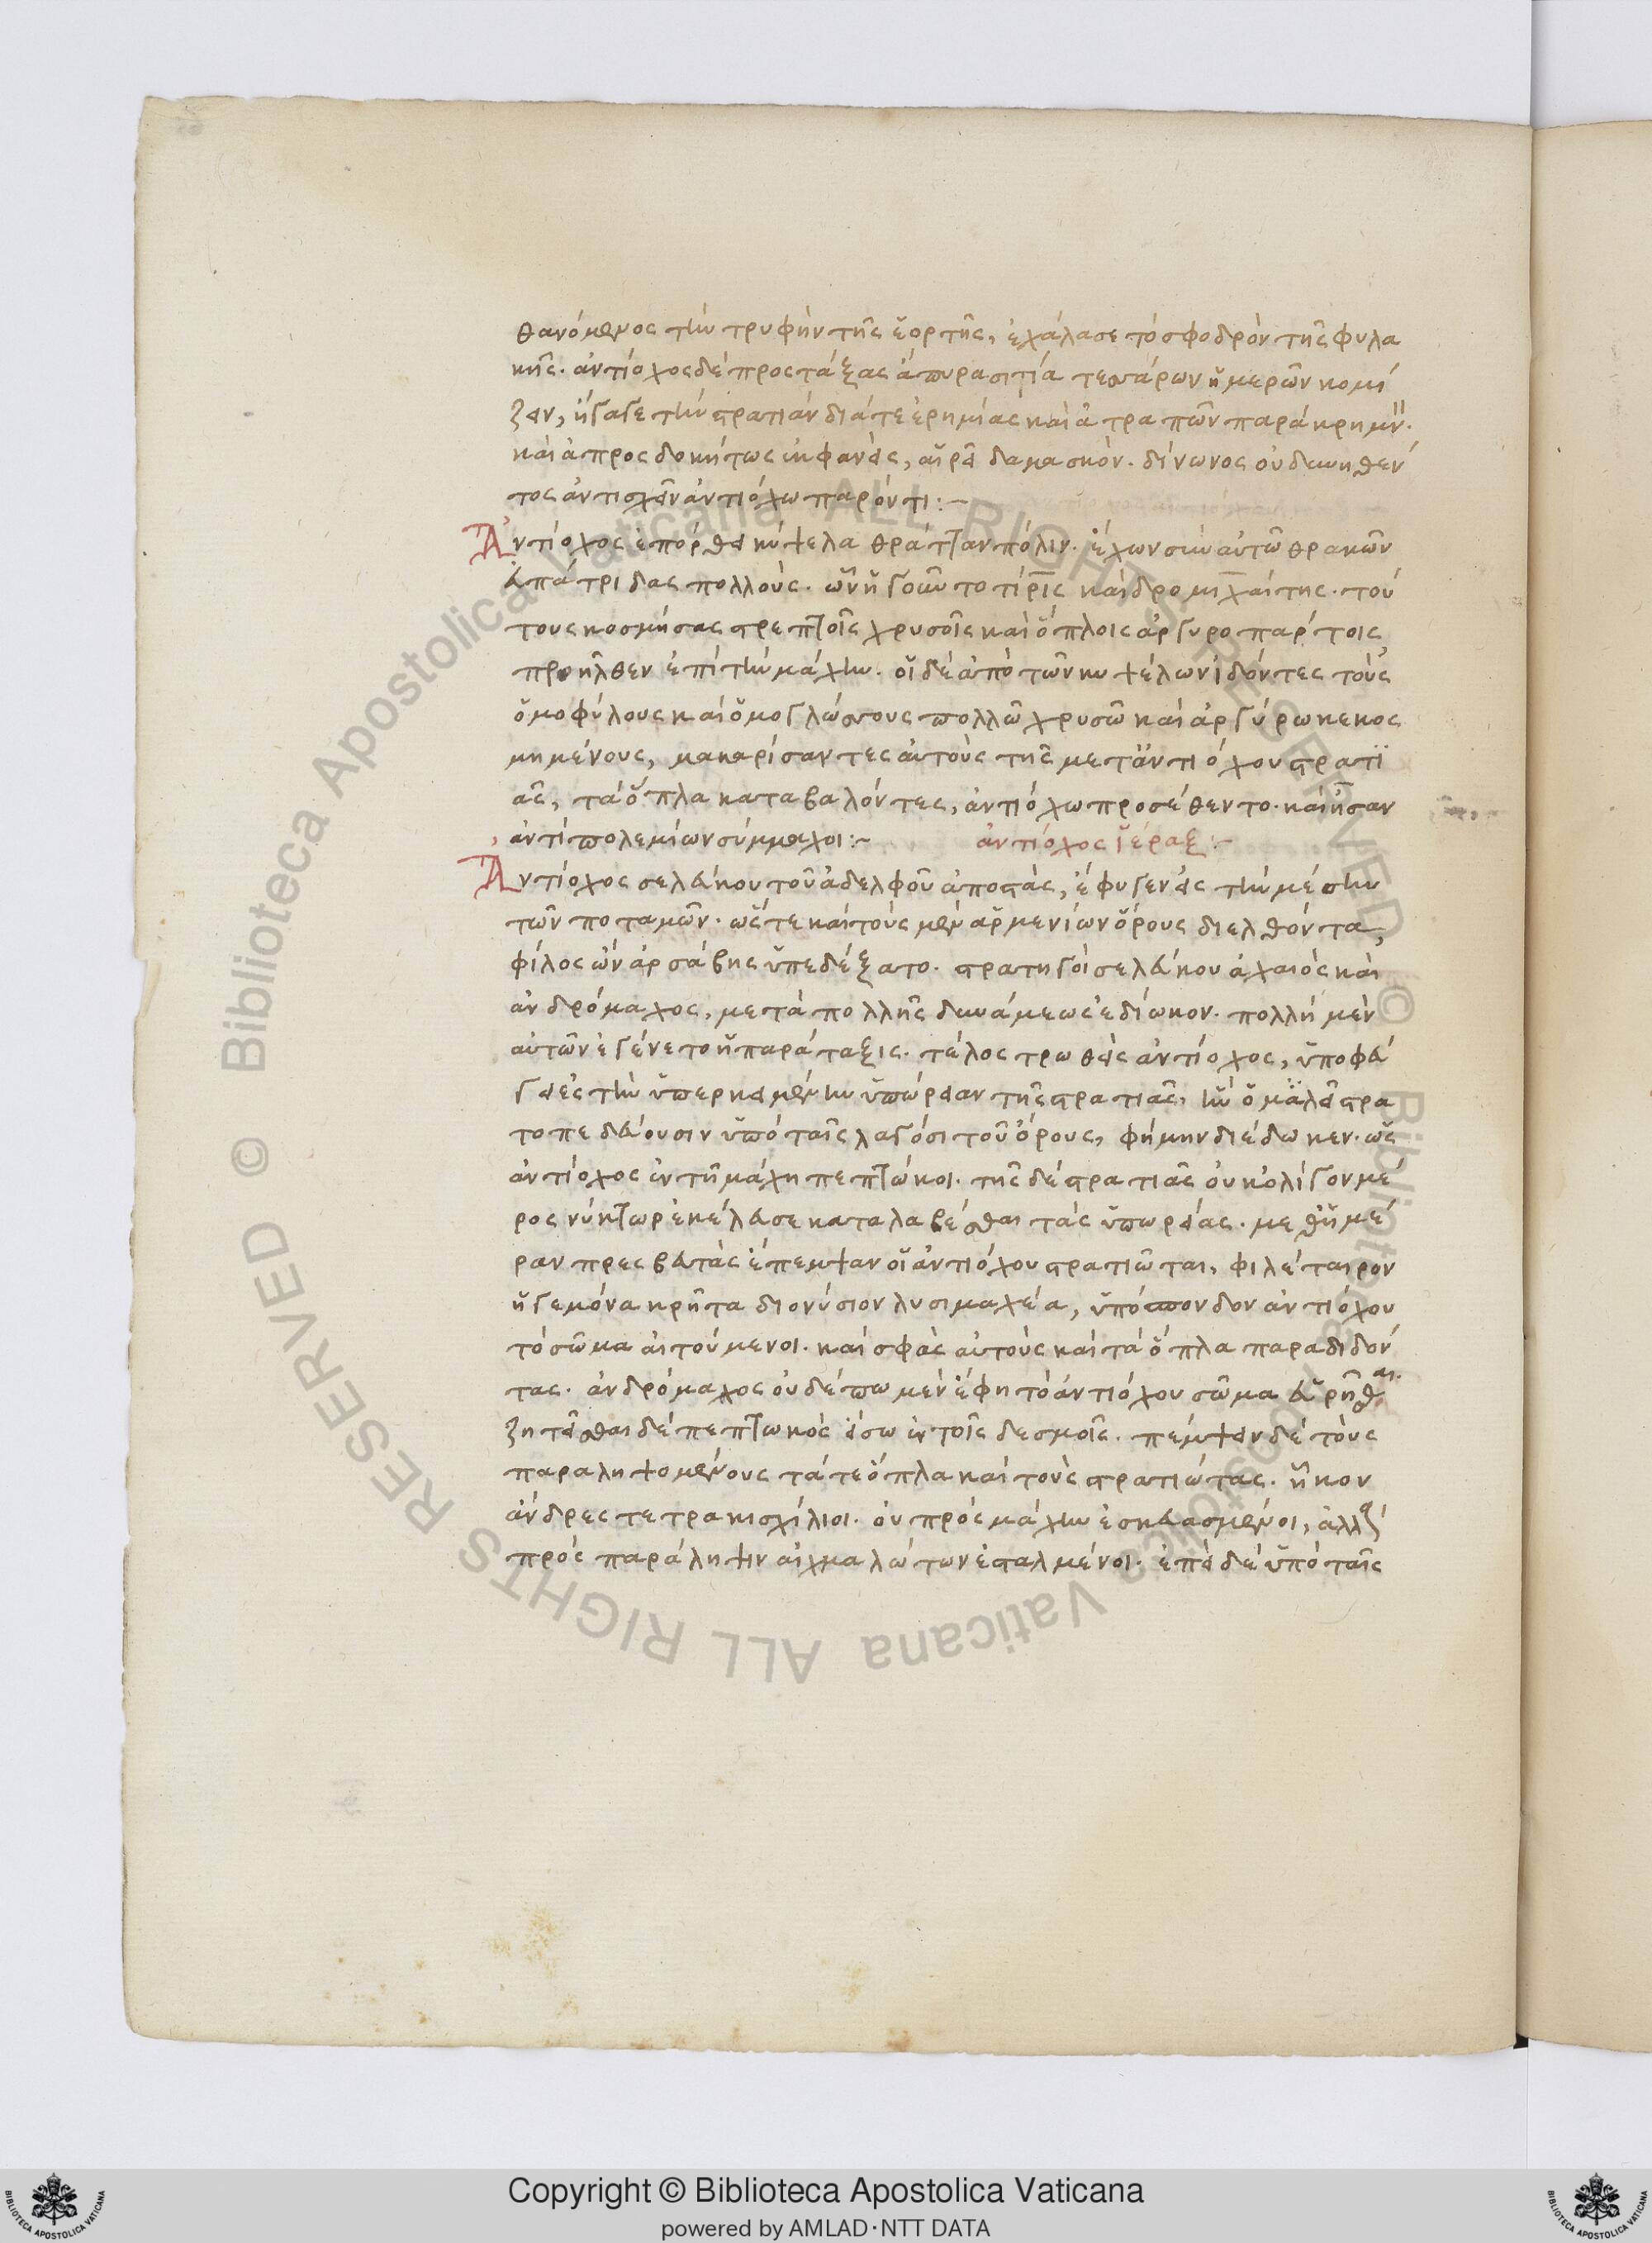 θανόμενος τὴν τρυφὴν τῆς ἑορτῆς, ἐχάλασε τὸ σφοδρὸν τῆς φυλα
κῆς. ἀντίοχος δὲ προστάξας ἄπυρα σιτία τεσσάρων ἡμερῶν κομί
ζειν, ἤγαγε τὴν στρατιὰν διά τε ἐρημίας καὶ ἀτραπῶν παρακρήμν.
καὶ ἀπροσδοκήτως ἐκφανεὶς, αἱρεῖ δαμασκὸν. δίνωνος οὐ δυνηθέν
τος ἀντισχεῖν ἀντιόχω παρόντι:~
Ἀντίοχος ἐπόρθει κύψελα θράττιαν πόλιν. ἔχων σὺν αὐτῶ θρακῶν
εὐπάτριδας πολλοὺς. ὧν ἡγοῦντο τίρις καὶ δρομιχαίτης. τού
τους κοσμήσας στρεπτοῖς χρυσοῖς καὶ ὅπλοις ἀργυροπάστοις
προῆλθεν ἐπὶ τὴν μάχην. οἱ δὲ ἀπὸ τῶν κυψέλων ἰδόντες τοὺς
ὁμοφύλους καὶ ὁμογλώσσους πολλῶ χρυσῶ καὶ ἀργύρω κεκοσ
μημένους, μακαρίσαντες αὐτοὺς τῆς μετ' ἀντιόχου στρατι
ᾶς, τὰ ὅπλα καταβαλόντες, ἀντιόχω προσέθεντο. καὶ ἦσαν
ἀντὶ πολεμίων σύμμαχοι:~ ἀντίοχος ἱέραξ:~
Ἀντίοχος σελεύκου τοῦ ἀδελφοῦ ἀποστὰς, ἔφυγεν εἰς τὴν μέσην
τῶν ποταμῶν. ὥστε καὶ τοὺς μὲν ἀρμενίων ὅρους διελθόντα,
φίλος ὢν ἀρσάβης ὑπεδέξατο. στρατηγοὶ σελεύκου ἀχαιὸς καὶ
ἀνδρόμαχος, μετὰ πολλῆς δυνάμεως ἐδίωκον. πολλὴ μὲν
αὐτῶν ἐγένετο ἡ παράταξις. τέλος τρωθεὶς ἀντίοχος, ὑποφεύ
γει ἐς τὴν ὑπερκειμένην ὑπώρειαν τῆς στρατιᾶς, ἣν ὁμαλεῖ στρα
τοπεδεύουσιν ὑπὸ ταῖς λαγόσι τοῦ ὄρους, φήμην διέδωκεν. ὡς
ἀντίοχος ἐν τῆ μάχη πεπτώκοι. τῆς δὲ στρατιᾶς οὐκ ὀλίγον μέ
ρος νύκτωρ ἐκέλευσε καταλαβέσθαι τὰς ὑπωρείας. μεθ' ἡμέ
ραν πρεσβευτὰς ἔπεμψαν οἱ ἀντιόχου στρατιῶται, φιλέταιρον
ἡγεμόνα κρῆτα διονύσιον λυσιμαχέα, ὑπόσπονδον ἀντιόχου
τὸ σῶμα αἰτούμενοι. καὶ σφᾶς αὐτοὺς καὶ τὰ ὅπλα παραδιδόν
τας. ἀνδρόμαχος οὐδέπω μὲν ἔφη τὸ ἀντιόχου σῶμα εὑρῆσθαι.
ζητεῖσθαι δὲ πεπτωκὸς εἴσω ἐν τοῖς δεσμοῖς. πέμψειν δὲ τοὺς
παραληψομένους τά τε ὅπλα καὶ τοὺς στρατιώτας. ἧκον
ἄνδρες τετρακισχίλιοι. οὐ πρὸς μάχην ἐσκευασμένοι, ἀλλὰ
πρὸς παράληψιν αἰχμαλώτων ἐσταλμένοι. ἐπεὶ δὲ ὑπὸ ταῖς
Copyright © Biblioteca Apostolica Vaticana
powered by AMLAD·NTT DATA